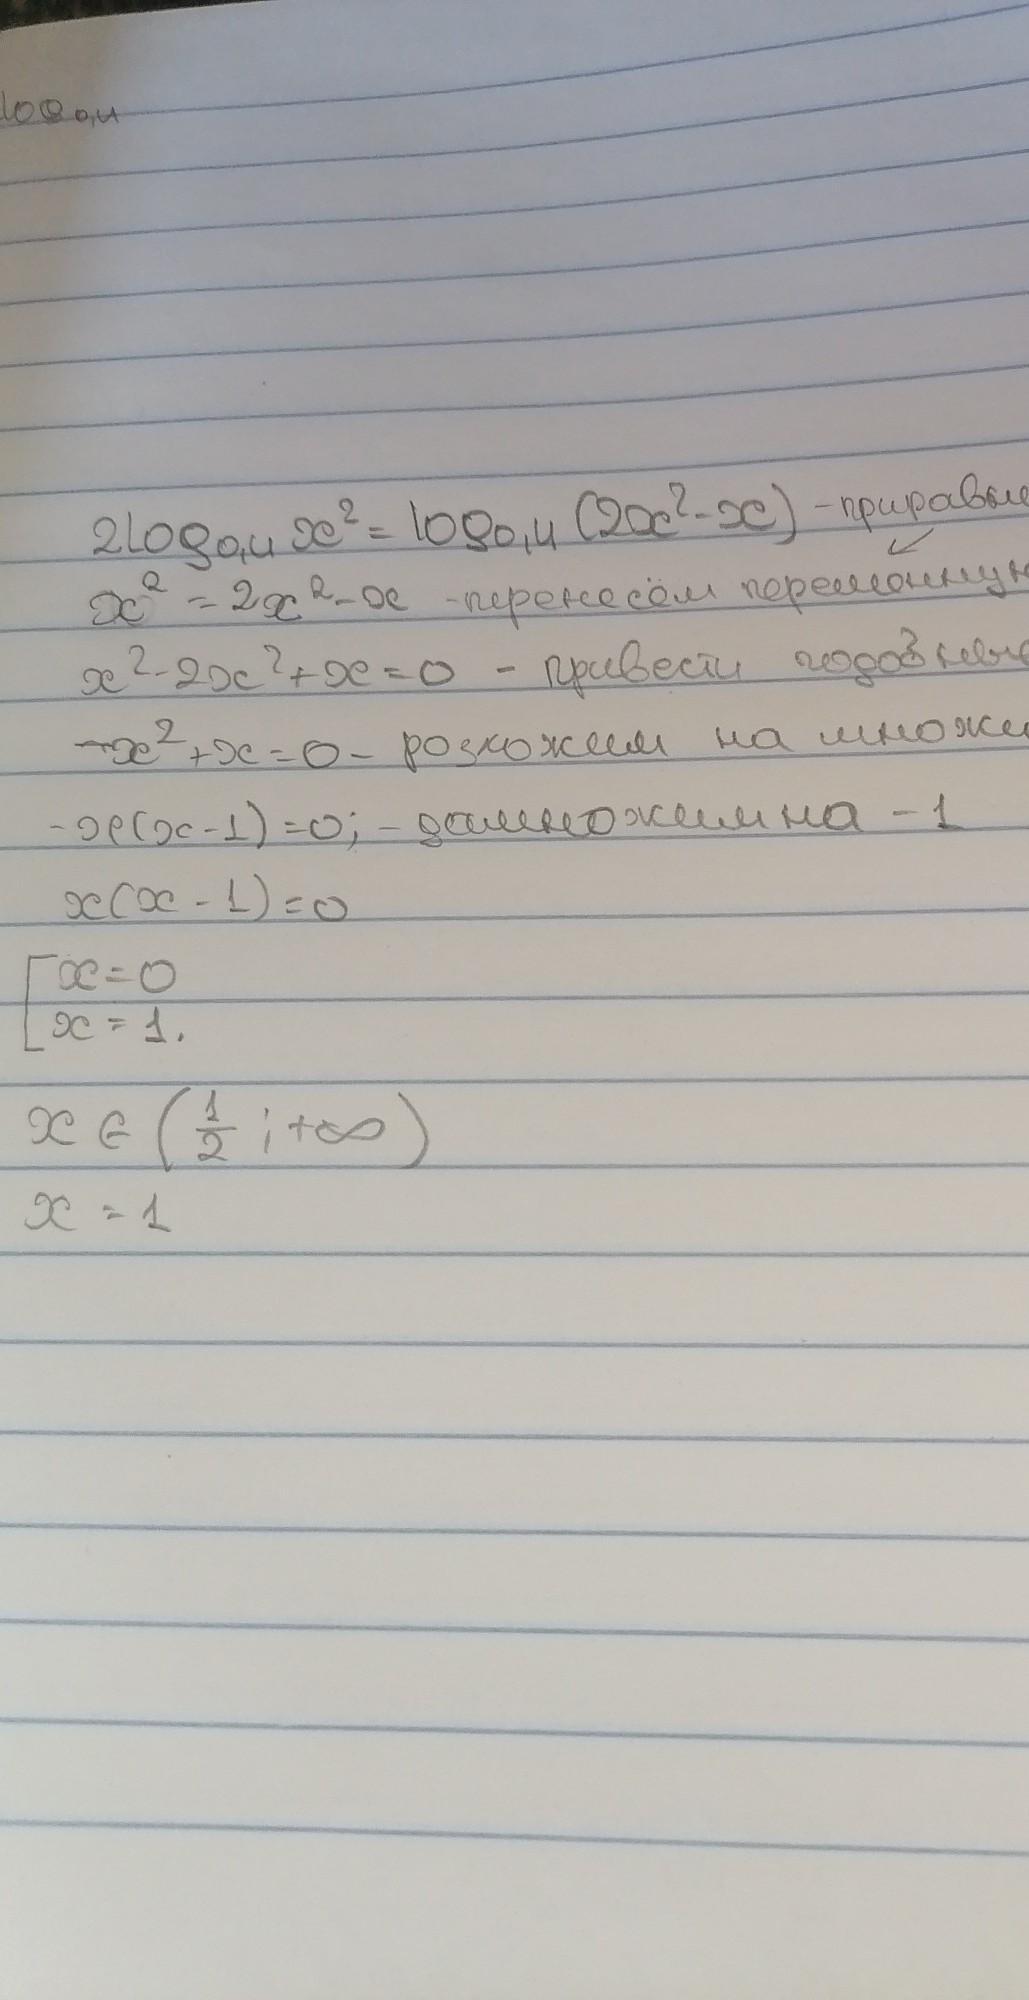 log₀,₄
2log₀,₄ x² = log₀,₄ (2x² - x) - приравне
x² = 2x² - x - перенесём переменную
x² - 2x² + x = 0 - привести подобные
-x² + x = 0 - розложим на множи
-x(x - 1) = 0; - домножим на - 1
x(x - 1) = 0
[ x = 0
x = 1.
x ∈ (1/2 ; +∞)
x = 1